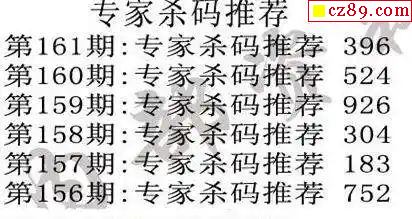 cz89.com
专家杀码推荐
第161期:专家杀码推荐 396
第160期:专家杀码推荐 524
第159期:专家杀码推荐 926
第158期:专家杀码推荐 304
第157期:专家杀码推荐 183
第156期:专家杀码推荐 752